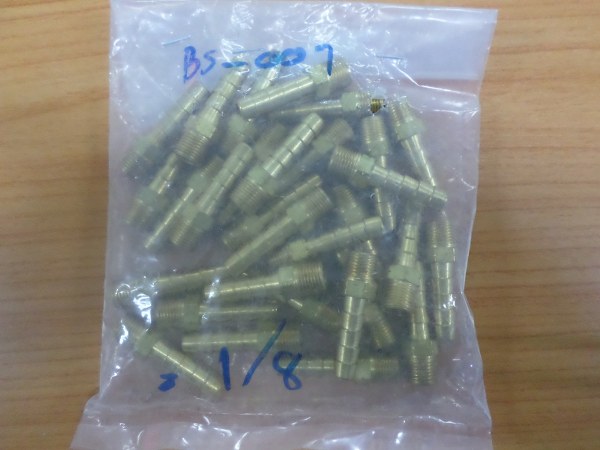 BS-007
1/8